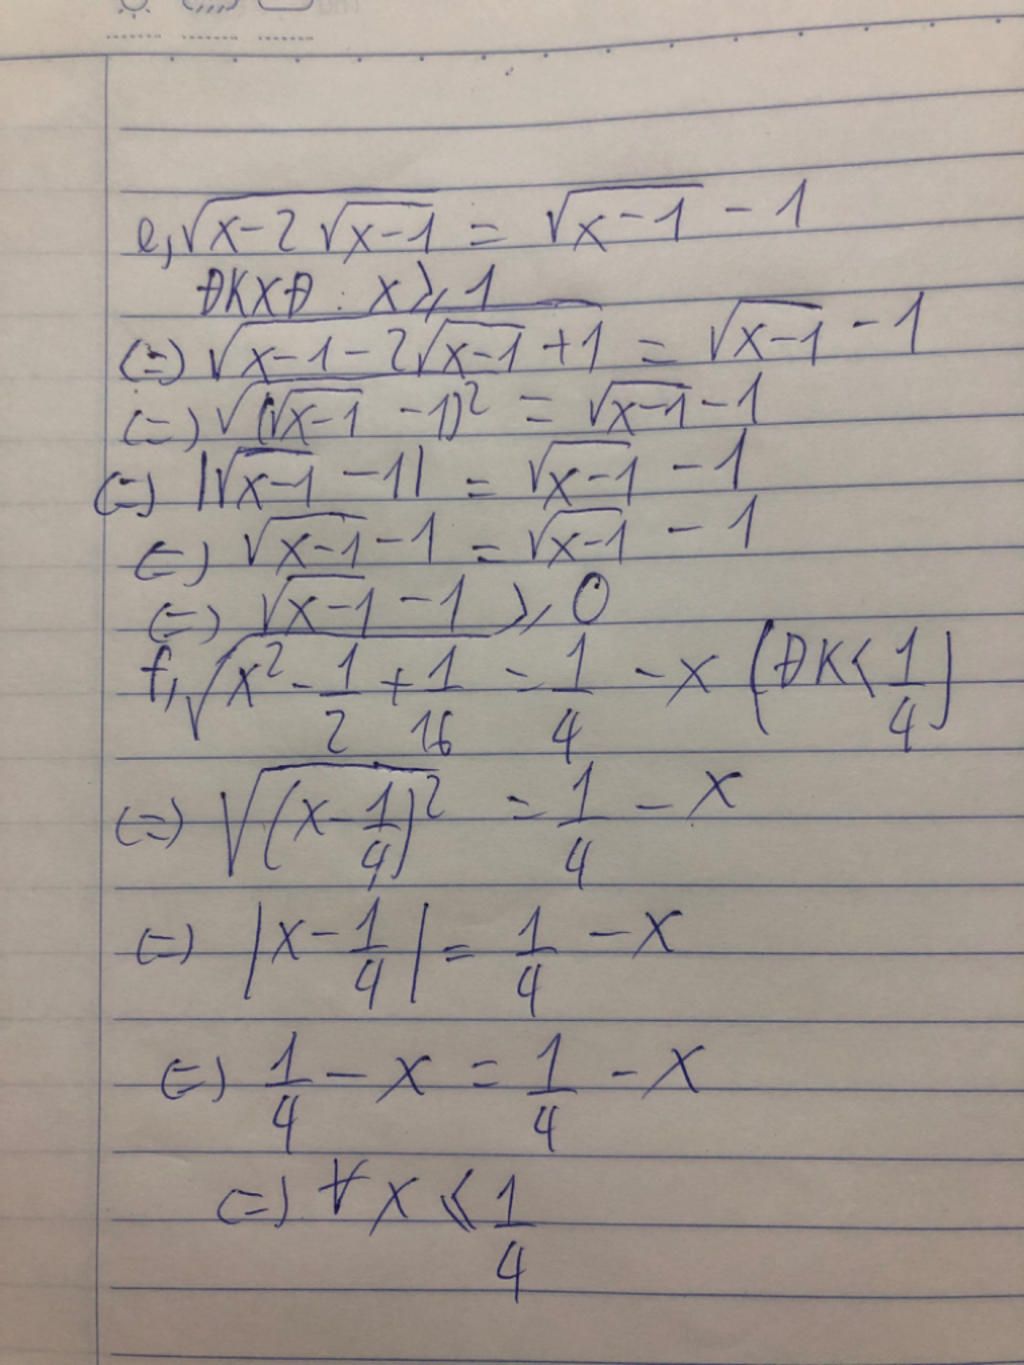 e, √(x-2√(x-1)) = √(x-1) - 1
ĐKXĐ : x ⩾ 1
(=) √(x-1-2√(x-1)+1) = √(x-1) - 1
(=) √((√(x-1) - 1)²) = √(x-1) - 1
(=) |√(x-1) - 1| = √(x-1) - 1
(=) √(x-1) - 1 = √(x-1) - 1
(=) √(x-1) - 1 ⩾ 0
f, √(x² - 1/2 + 1/16) = 1/4 - x (ĐK ⩽ 1/4)
(=) √((x - 1/4)²) = 1/4 - x
(=) |x - 1/4| = 1/4 - x
(=) 1/4 - x = 1/4 - x
(=) ∀x ⩽ 1/4